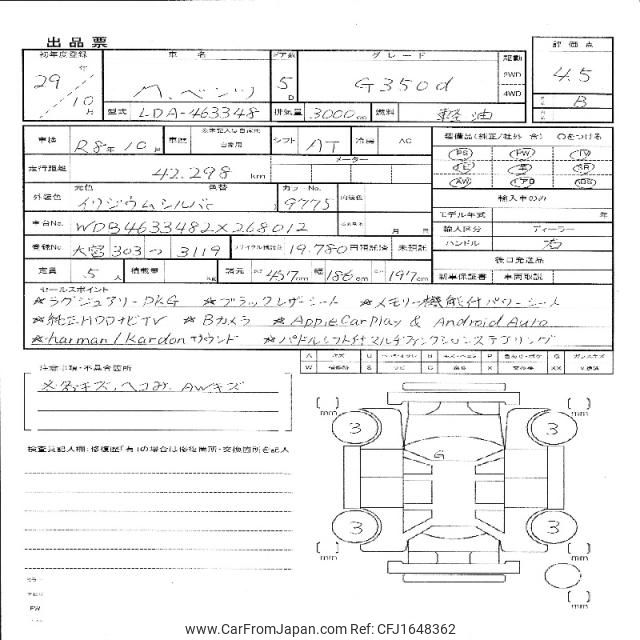 出品票
初年度登録 車名 ドア数 グレード 駆動 評価点
29年 10月 M.ベンツ 5D G350d 2WD 4WD 4.5
B
型式 LDA-463348 排気量 3000cc 燃料 軽油
車検 R8年10月 車歴 自家用 シフト AT 冷房 AC 装備品(純正/社外 含) ○をつける
PS PW TV
走行距離 42.298km メーター
AW エアB
元色 色替 カラーNo. 内装色 輸入車のみ
外装色 イリジウムシルバー 9775 モデル年式 年
車台No. WDB4633482X268012 月 日 輸入区分 ディーラー
登録No. 大宮303つ3119 リサイクル預託金 19.780円預託済 未預託 ハンドル 右
後日発送品
定員 5人 積載量 kg 諸元 457cm 幅 186cm 197cm 新車保証書 車両取説
セールスポイント
☆ラグジュアリーPKG ☆ブラックレザーシート ☆メモリー機能付パワーシート
☆純正HDDナビTV ☆Bカメラ ☆AppleCarPlay & Android Auto
☆harman/Kardonサウンド ☆パドルシフト付マルチファンクションステアリング
A キズ U B P G
W S C X XX
注意事項・不具合箇所
※若キズ、ヘコみ、AWキズ
検査員記入欄:修復歴「有」の場合は修復箇所・交換箇所を記入
mm mm
3 3
G
3 3
mm mm
mm
PW
www.CarFromJapan.com Ref: CFJ1648362